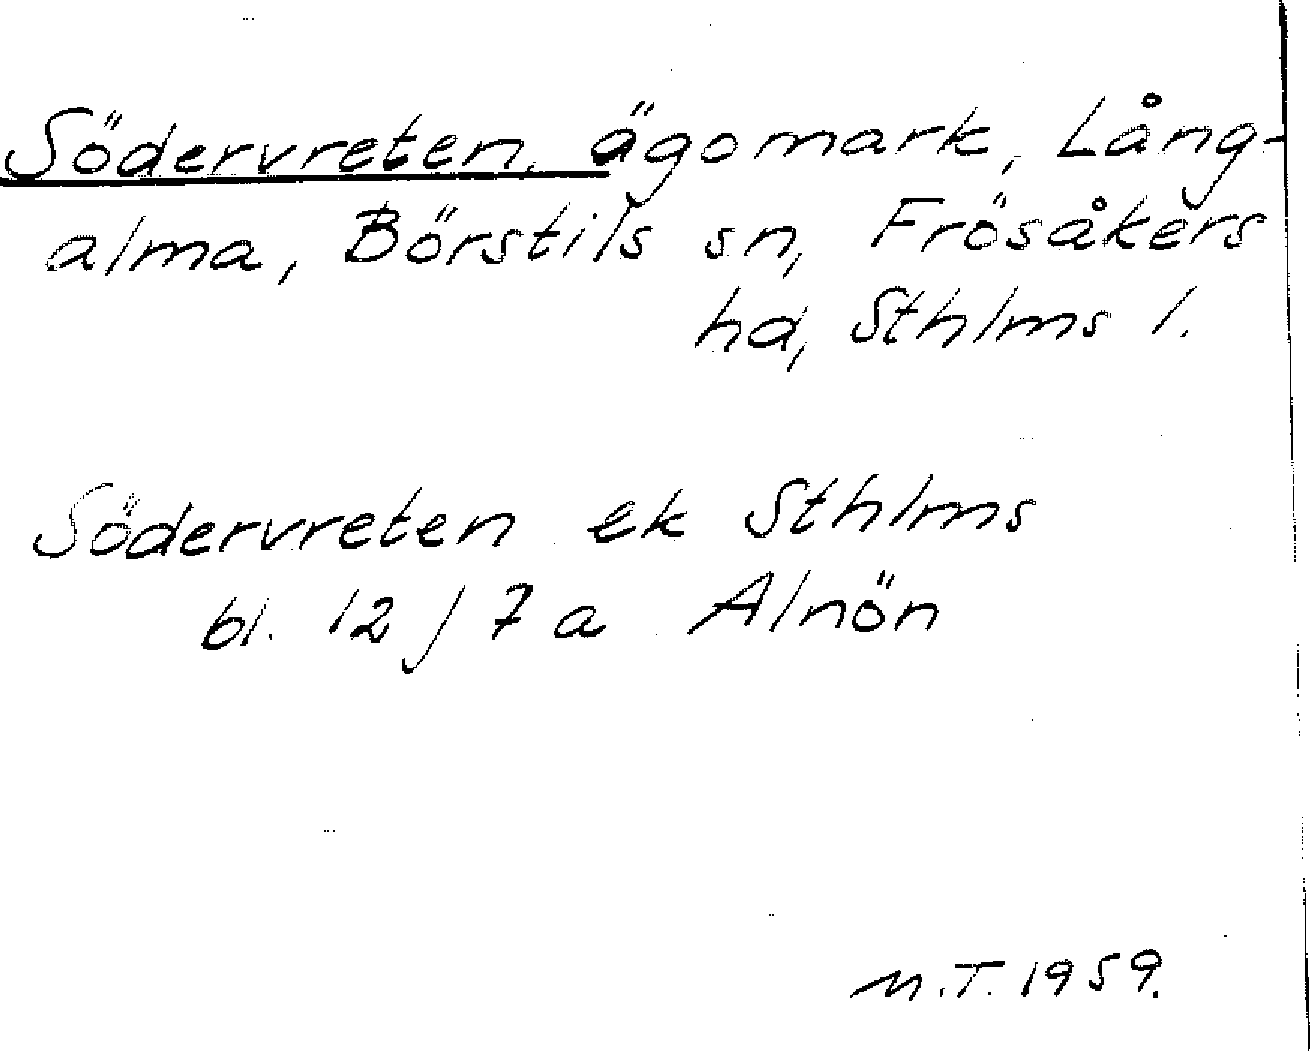 Södervreten, ägomark, Lång-
alma, Börstils sn, Frösåkers
hd, Sthlms l.
Södervreten ek Sthlms
bl. 12 J 7 a Alnön
M.T. 1959.